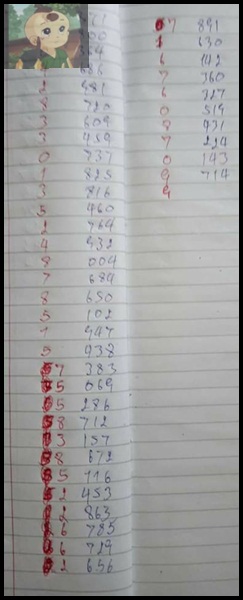 2 981
8 720
3 609
3 459
0 737
1 825
3 816
5 460
2 764
4 932
8 004
7 684
8 650
5 102
1 947
5 938
7 383
5 069
5 286
8 712
3 157
8 672
5 116
2 453
2 863
6 785
6 729
2 656
7 891
1 630
6 142
7 360
6 327
0 519
8 931
7 224
0 143
9 714
9